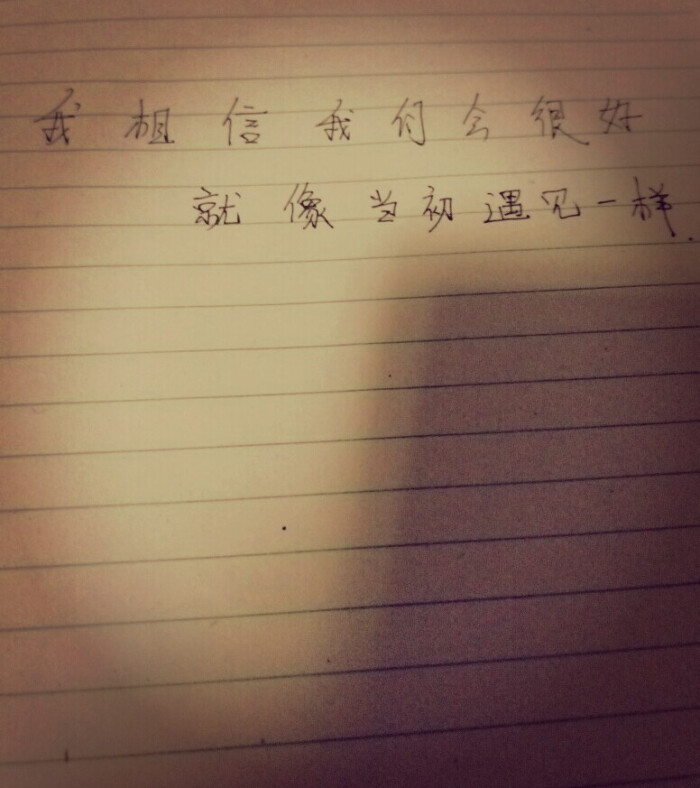 我相信我们会很好
就像当初遇见一样.